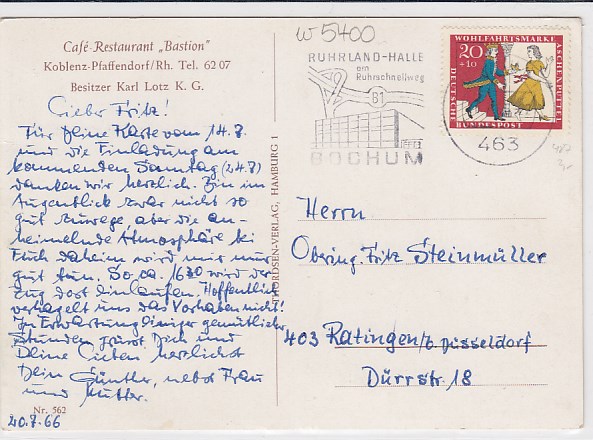 Café-Restaurant „Bastion"
Koblenz-Pfaffendorf/Rh. Tel. 62 07
Besitzer Karl Lotz K. G.
Lieber Fritz!
Für Deine Karte vom 14.7.
und die Einladung am
kommenden Samstag (24.7)
danken wir herzlich. Bin im
Augenblick zwar nicht so
gut zuwege aber die an-
heimelnde Atmosphäre bei
Euch daheim wird mir nur
gut tun. So ca. 1630 wird der
Zug dort einlaufen. Hoffentlich
verhagelt uns das Vorhaben nicht!
In Erwartung einiger gemütlicher
Stunden grüsst Dich und
Deine Lieben herzlichst
Dein Günther, nebst Frau
und Mutter.
Nr. 562
20.7.66
THORDSEN-VERLAG, HAMBURG 1
W 5400
RUHRLAND-HALLE
am
Ruhrschnellweg
B1
BOCHUM
463
WOHLFAHRTSMARKE
20
+10
ASCHENPUTTEL
DEUTSCHE
BUNDESPOST
Herrn
Obering. Fritz Steinmüller
403 Ratingen/b. Düsseldorf
Dürrstr. 18